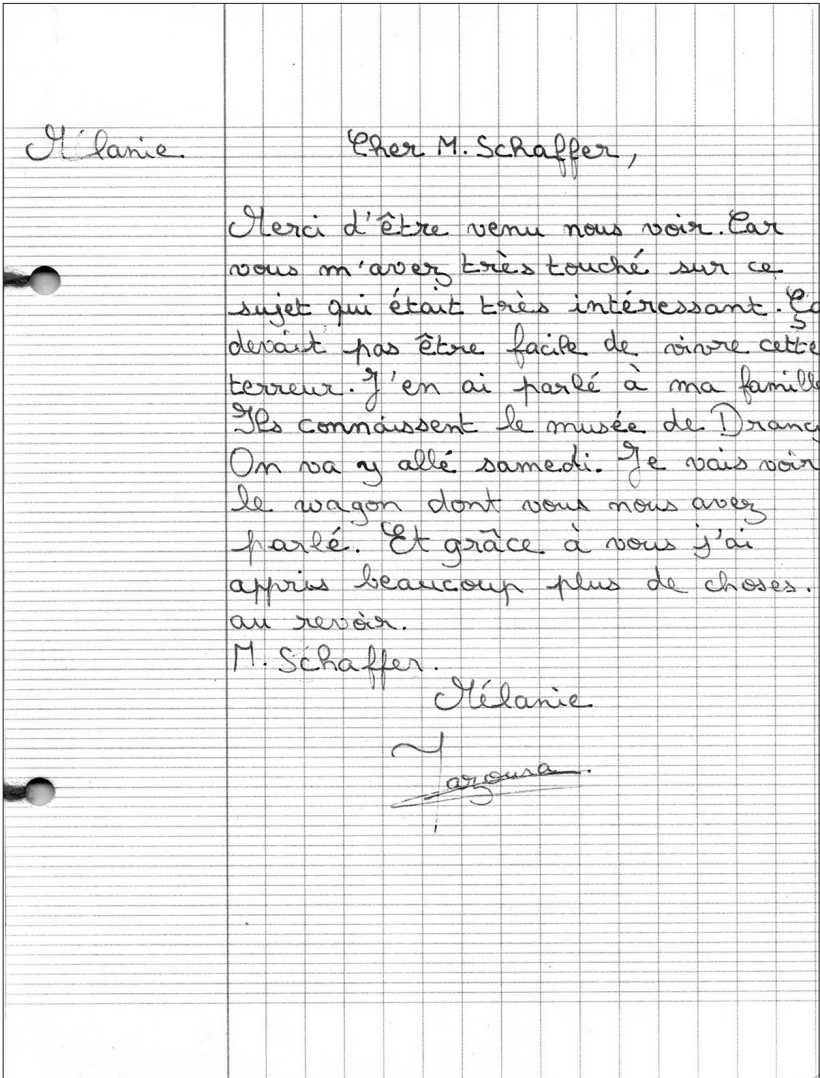 Mélanie.
Cher M. Schaffer,
Merci d'être venu nous voir. Car
vous m'avez très touché sur ce
sujet qui était très intéressant. Ça
devait pas être facile de vivre cette
terreur. J'en ai parlé à ma famille
Ils connaissent le musée de Drancy
On va y allé samedi. Je vais voir
le wagon dont vous nous avez
parlé. Et grâce à vous j'ai
appris beaucoup plus de choses.
au revoir.
M. Schaffer.
Mélanie